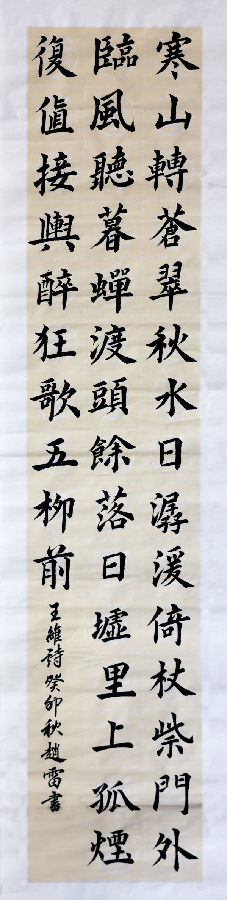 寒山轉蒼翠秋水日潺湲倚杖柴門外
臨風聽暮蟬渡頭餘落日墟里上孤煙
復值接輿醉狂歌五柳前
王維詩癸卯秋趙雷書